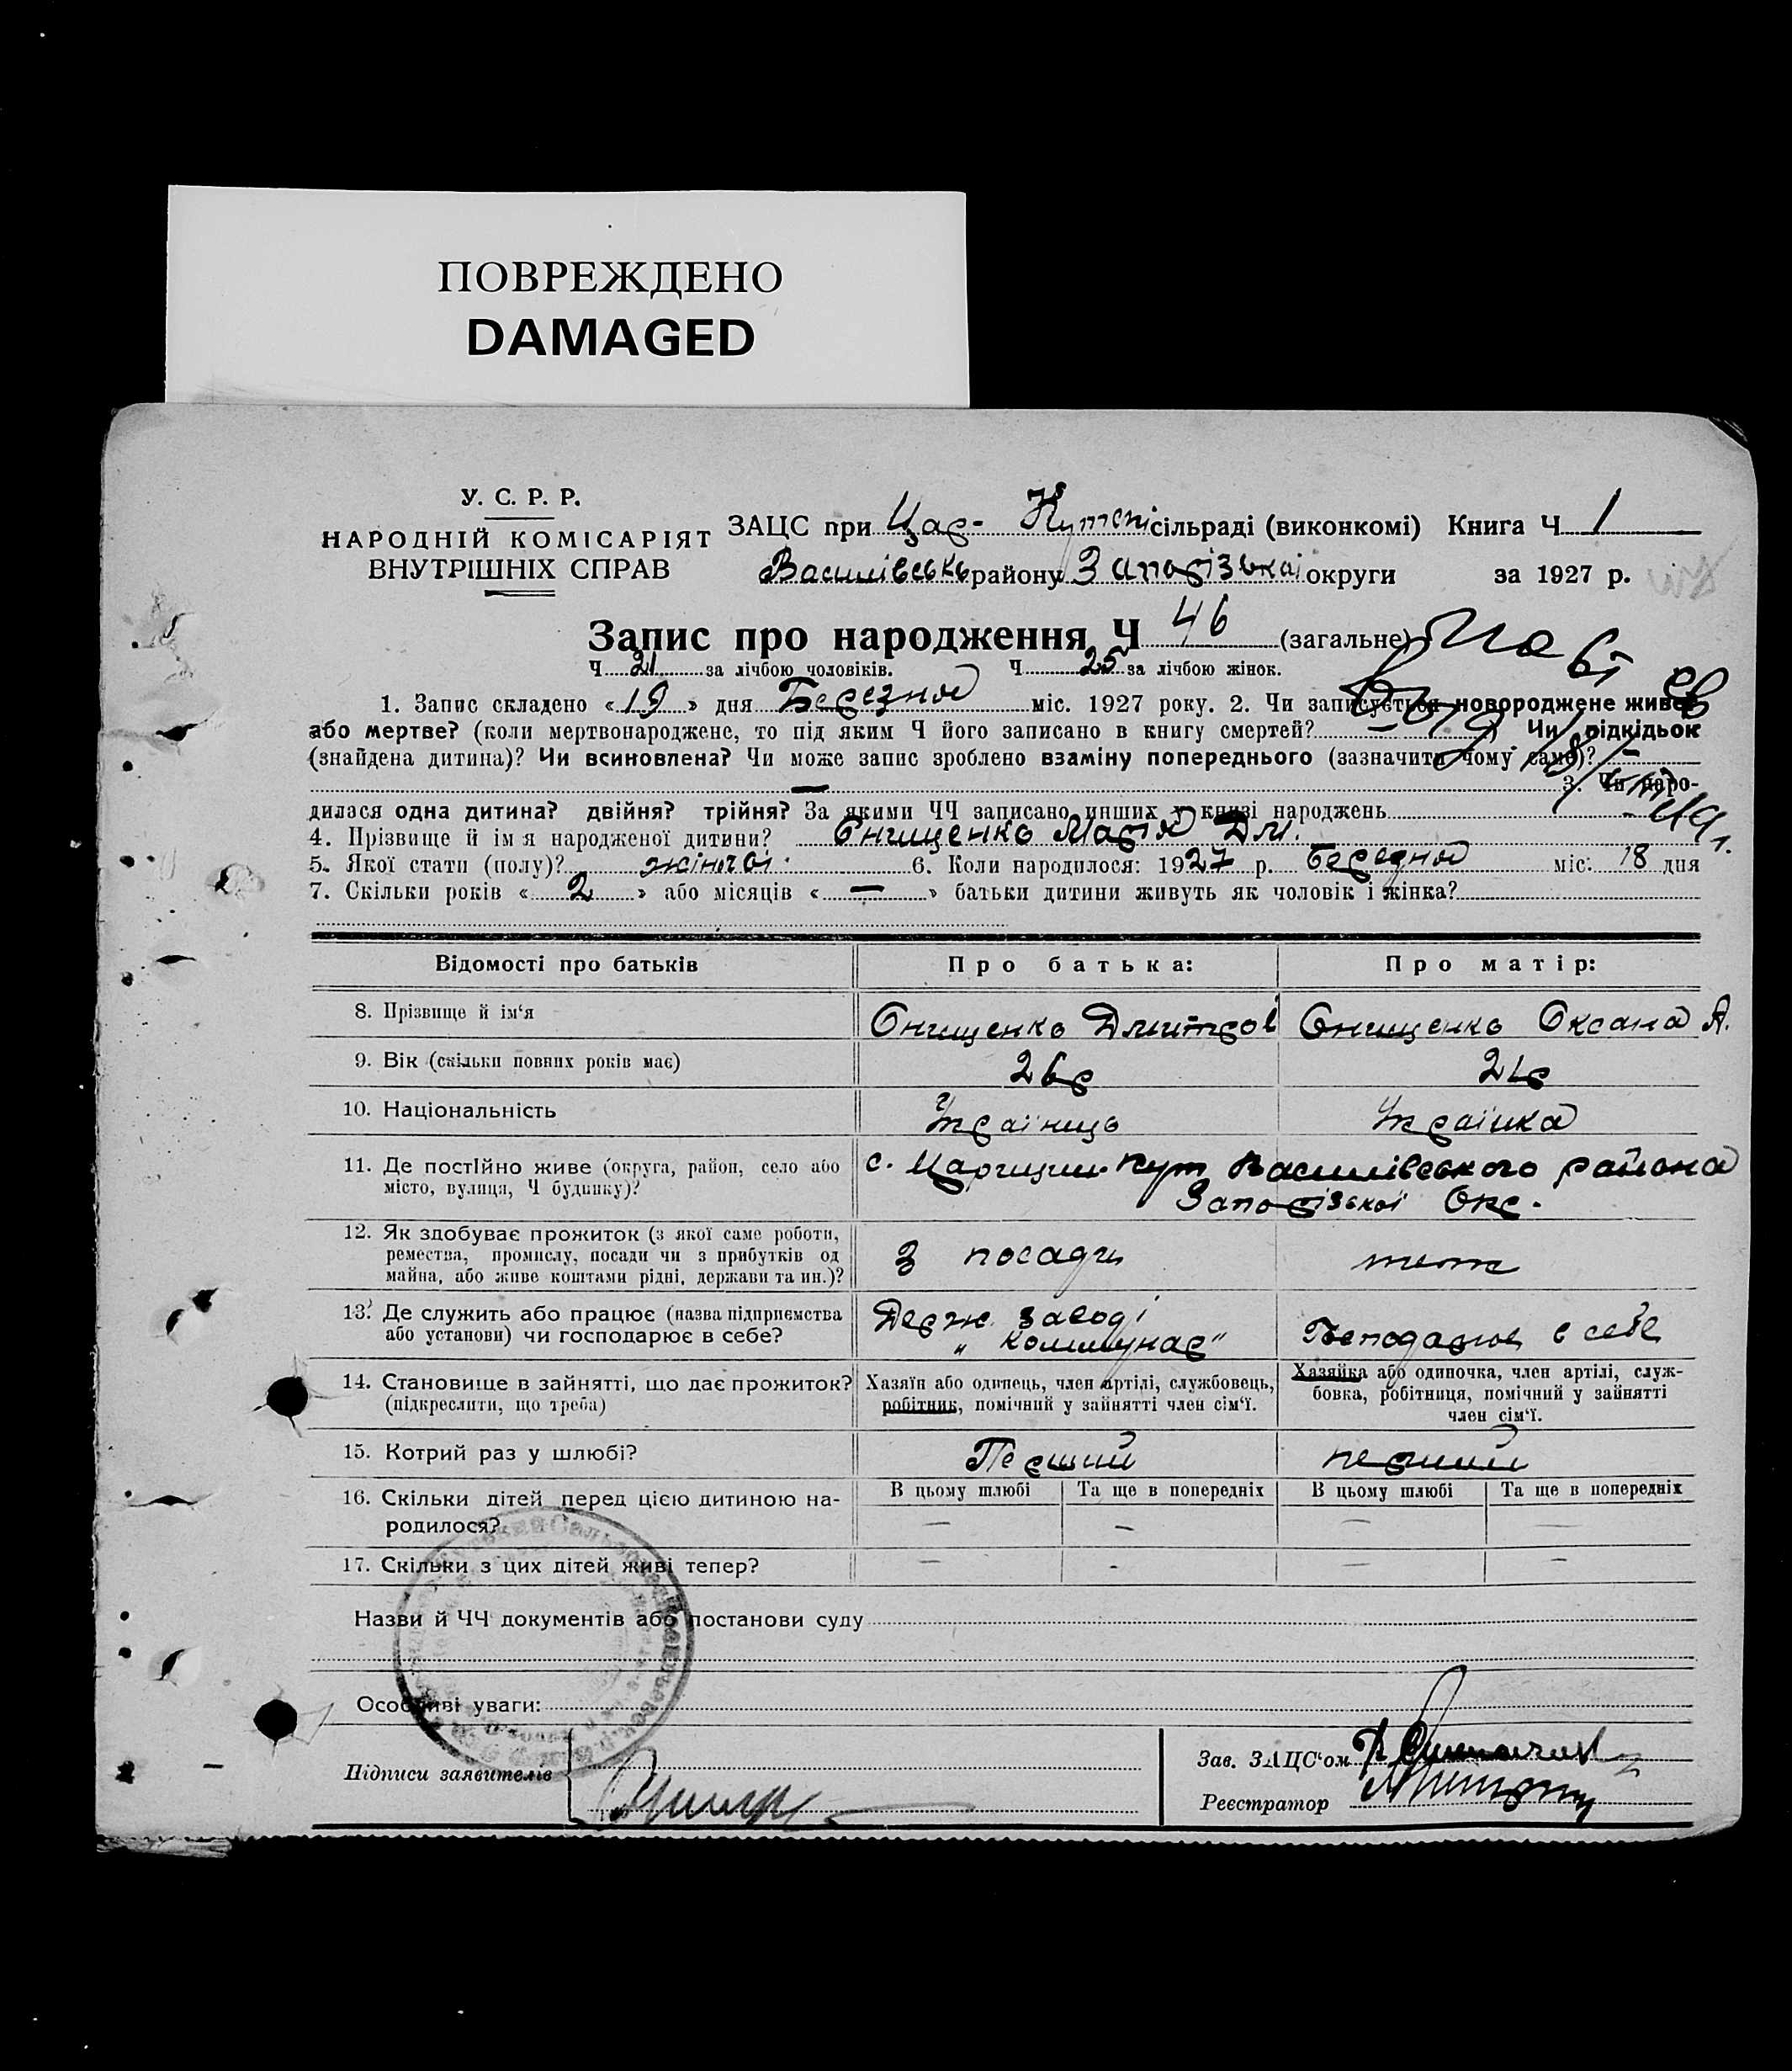 ПОВРЕЖДЕНО
DAMAGED
У. С. Р. Р.
НАРОДНІЙ КОМІСАРІЯТ
ВНУТРІШНІХ СПРАВ
ЗАЦС при Цар- Кутені сільраді (виконкомі) Книга Ч 1
Василівськ району Запорізької округи за 1927 р.
Запис про народження Ч 46 (загальне)
Ч 21 за лічбою чоловіків. Ч 25 за лічбою жінок.
1. Запис складено « 19 » дня Березня міс. 1927 року. 2. Чи записується новороджене живе
або мертве? (коли мертвонароджене, то під яким Ч його записано в книгу смертей? – Чи підкідьок
(знайдена дитина)? Чи всиновлена? Чи може запис зроблено взаміну попереднього (зазначити чому саме)? –
— 3. Чи наро-
дилася одна дитина? двійня? трійня? За якими ЧЧ записано инших у книзі народжень
4. Прізвище й ім я народженої дитини? Онищенко Марія Дм.
5. Якої стати (полу)? жіночої. 6. Коли народилося: 1927 р. березня міс. 18 дня
7. Скільки років « 2 » або місяців « — » батьки дитини живуть як чоловік і жінка?
Відомості про батьків Про батька: Про матір:
8. Прізвище й ім‘я Онищенко Дмитрої Онищенко Оксана А.
9. Вік (скільки повних років має) 26р 21р
10. Національність Українць Українка
11. Де постійно живе (округа, район, село або с. Царицин-Кут Василівського района
місто, вулиця, Ч будинку)? Запорізької Окр.
12. Як здобуває прожиток (з якої саме роботи,
ремества, промислу, посади чи з прибутків од З посади теж
майна, або живе коштами рідні, держави та ин.)?
13. Де служить або працює (назва підприємства Держ. заводі
або установи) чи господарює в себе? „ Коммунар“ Господарює в себе
14. Становище в зайнятті, що дає прожиток? Хазяїн або одинець, член артілі, службовець, Хазяйка або одиночка, член артілі, служ-
(підкреслити, що треба) робітник, помічний у зайнятті член сім‘ї. бовка, робітниця, помічний у зайнятті
член сім‘ї.
15. Котрий раз у шлюбі? Перший перший
16. Скільки дітей перед цією дитиною на- В цьому шлюбі Та ще в попередніх В цьому шлюбі Та ще в попередніх
родилося? – – – –
17. Скільки з цих дітей живі тепер? – - – –
Назви й ЧЧ документів або постанови суду
Особливі уваги:
Підписи заявителів
Зав. ЗАЦС‘ом
Реєстратор